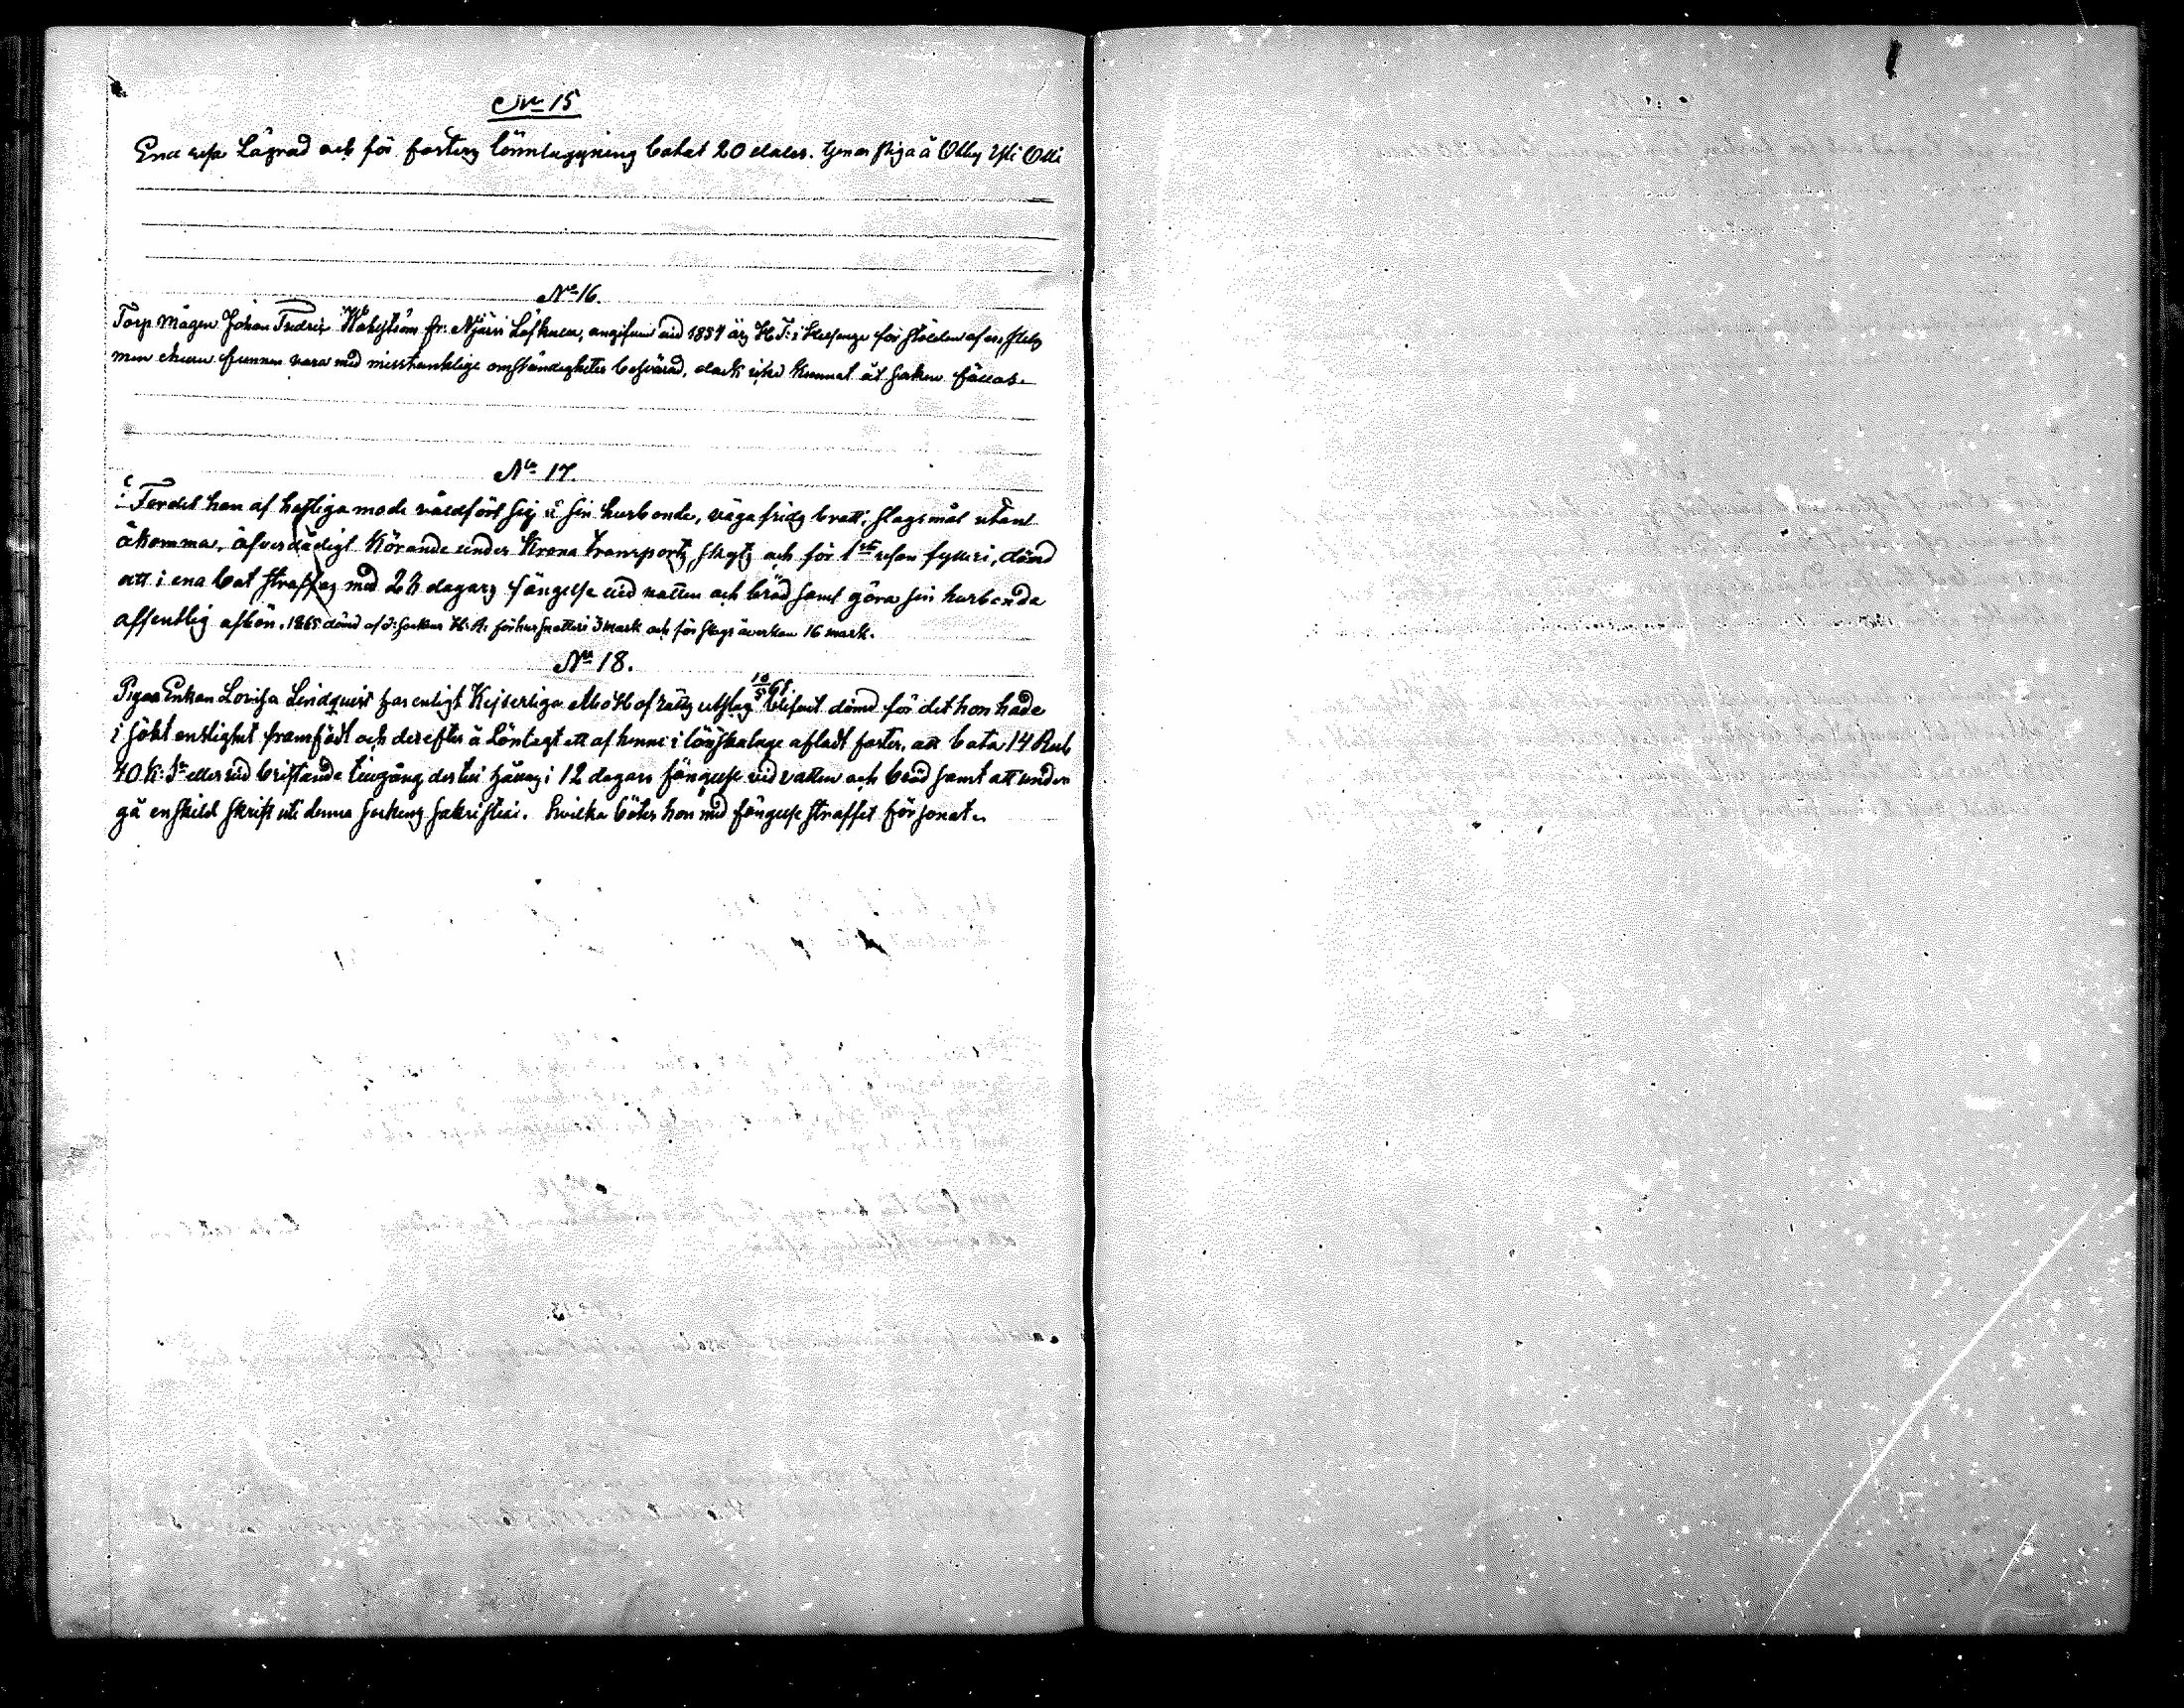 No 15
Ena resa Lägrad och för fosters lönnläggning botat 20 daler. tjenar piga å Olby Yli Olli
No 16.
Torp Mågen Johan Fredric Wahlström fr: Njärvi Löfkulla, angifven vid 1854 års H T: i för stölden af en
men ehuru funnen vara med misstänklige omständigheter besvärad, dock icke kunnat åt saken fällas.
No 17.
För det han af hastiga mode våldfört sig å sin husbonde, väga frids brott, slagsmål utant
åkomma, öfverdådigt körande under Krono transports skyts och för 1sta resan fylleri, dömd
att i ena bot straffas med 28 dagars fängelse vid vatten och bröd samt göra sin husbonde
offentlig afbön. 1865 dömd af S: sockns H: R: för hus snatteri 3 mark och för slags åverkan 16 mark.
No 18.
10/5 65.
Pigan Enkan Lovisa Lindquist har enligt Kejserliga Åbo Hofrätts utslag blifvit dömd för det hon hade
i sökt enslighet framfödt och derefter å Lönlagt ett af henne i lönskalage afladt foster, att bota 14 Rub
40 K: Sr eller vid bristande tillgång dertill hållas i 12 dagars fängelse vid vatten och bröd samt att under
gå enskild skrift uti denna sockens sakristia. hvilka böter hon med fängelse straffet försonat.